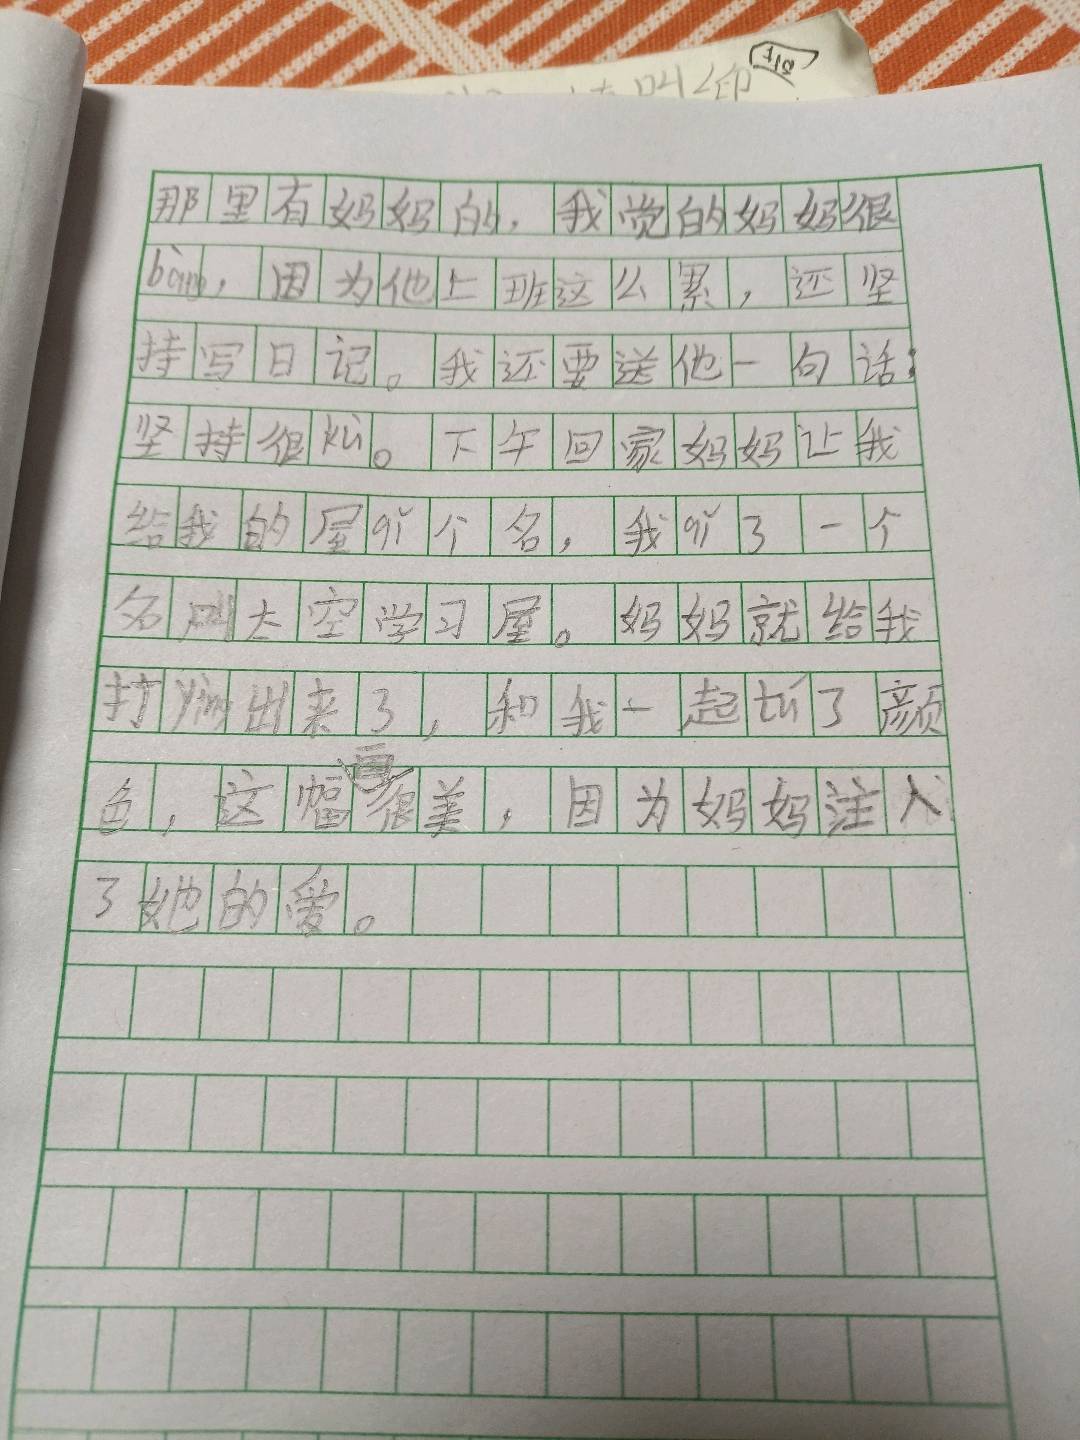 那里有妈妈的，我觉的妈妈很
bàng，因为他上班这么累，还坚
持写日记。我还要送他一句话：
坚持很kù。下午回家妈妈让我
给我的屋qǐ个名，我qǐ了一个
名叫太空学习屋。妈妈就给我
打yìn出来了，和我一起tú了颜
色，这幅画很美，因为妈妈注入
了她的爱。